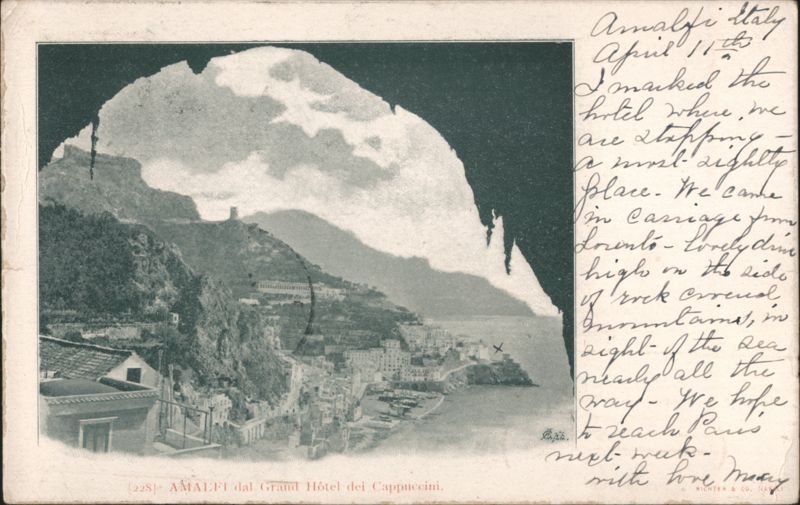 Amalfi Italy
April 11th
I marked the
hotel where we
are stopping -
a most sightly
place - We came
in carriage from
Sorento - lovely drive
high on the side
of rock covered
mountains, in
sight of the sea
nearly all the
way - We hope
to reach Paris
next week -
with love Mary
x
(228) AMALFI dal Grand Hôtel dei Cappuccini.
RICHTER & CO. NAPOLI